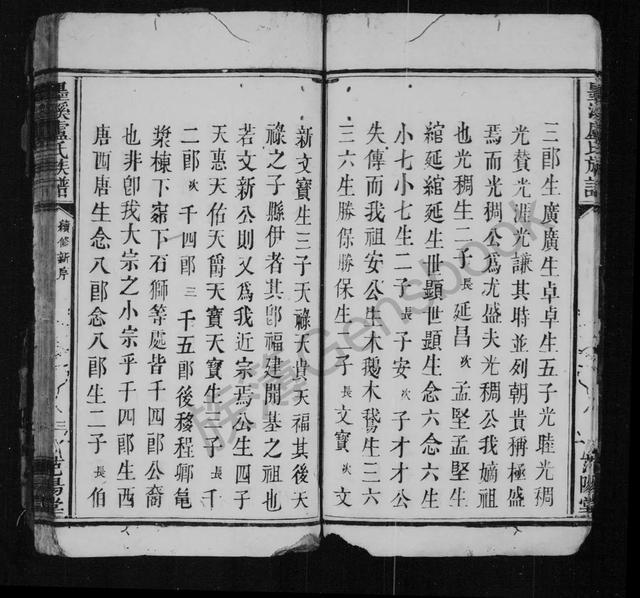 三郎生廣廣生卓卓生五子光睦光稠
光贊光涯光謙其時並列朝貴稱極盛
焉而光稠公為尤盛夫光稠公我嫡祖
也光稠生二子長延昌次孟堅孟堅生
綰延綰延生世顯世顯生念六念六生
小七小七生二子長子安次子才才公
失傳而我祖安公生木鵝木鵝生三六
三六生勝保勝保生二子長文寶次文
新文寶生三子天祿天貴天福其後天
祿之子縣伊者其卽福建開基之祖也
若文新公則又為我近宗焉公生四子
天惠天佑天爵天寶天寶生三子長千
二郎次千四郎三千五郎後移程鄉
槳棟下
石獅等處皆千四郎公裔
也非卽我大宗之小宗乎千四郎生西
唐西唐生念八郎念八郎生二子長伯
墨溪盧氏族譜
續修新序
三
范陽堂
族薄Gensbook